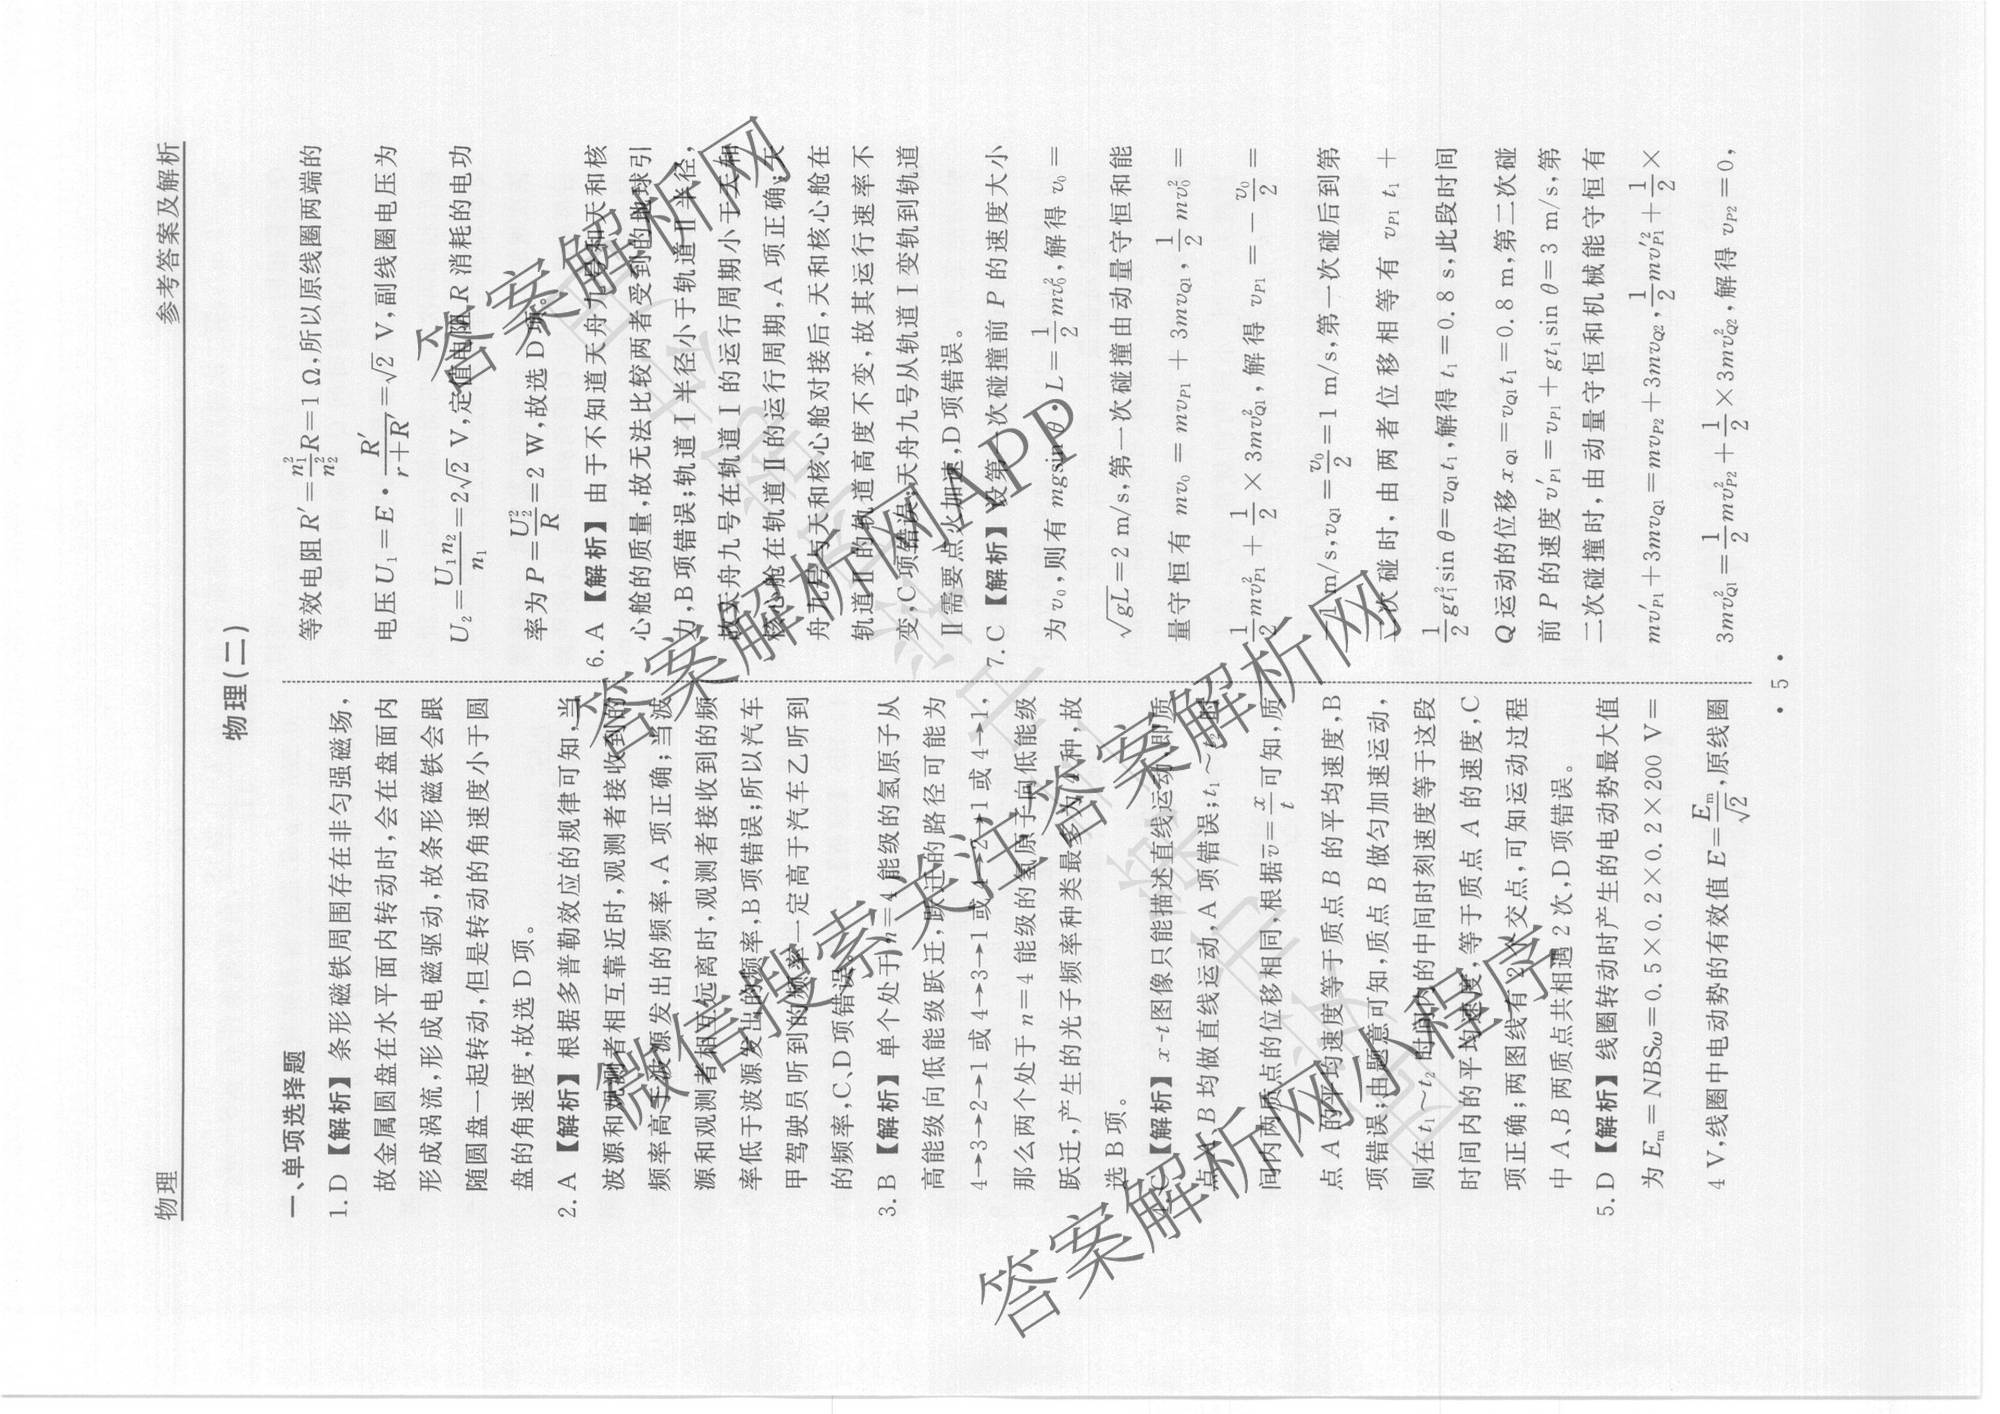 物理
参考答案及解析
物理(二)
一、单项选择题
1. D 【解析】条形磁铁周围存在非匀强磁场,
故金属圆盘在水平面内转动时,会在盘面内
形成涡流,形成电磁驱动,故条形磁铁会跟
随圆盘一起转动,但是转动的角速度小于圆
盘的角速度,故选 D 项。
2. A 【解析】根据多普勒效应的规律可知,当
波源和观测者相互靠近时,观测者接收到的
频率高于波源发出的频率,A 项正确;当波
源和观测者相互远离时,观测者接收到的频
率低于波源发出的频率,B 项错误;所以汽车
甲驾驶员听到的频率一定高于汽车乙听到
的频率,C、D 项错误。
3. B 【解析】单个处于 n=4 能级的氢原子从
高能级向低能级跃迁,跃迁的路径可能为
4→3→2→1 或 4→3→1 或 4→2→1 或 4→1,
那么两个处于 n=4 能级的氢原子向低能级
跃迁,产生的光子频率种类最多为 4 种,故
选 B 项。
4. C 【解析】x-t 图像只能描述直线运动,即质
点 A、B 均做直线运动,A 项错误;t₁~t₂ 时
间内两质点的位移相同,根据 v̄=x/t 可知,质
点 A 的平均速度等于质点 B 的平均速度,B
项错误;由题意可知,质点 B 做匀加速运动,
则在 t₁~t₂ 时间内的中间时刻速度等于这段
时间内的平均速度,等于质点 A 的速度,C
项正确;两图线有 2 个交点,可知运动过程
中 A、B 两质点共相遇 2 次,D 项错误。
5. D 【解析】线圈转动时产生的电动势最大值
为 Eₘ=NBSω=0.5×0.2×0.2×200 V=
4 V,线圈中电动势的有效值 E=Eₘ/√2,原线圈
等效电阻 R′=n₁²/n₂² R=1 Ω,所以原线圈两端的
电压 U₁=E·R′/(r+R′)=√2 V,副线圈电压为
U₂=U₁n₂/n₁=2√2 V,定值电阻 R 消耗的电功
率为 P=U₂²/R=2 W,故选 D 项。
6. A 【解析】由于不知道天舟九号和天和核
心舱的质量,故无法比较两者受到的地球引
力,B 项错误;轨道 Ⅰ 半径小于轨道 Ⅱ 半径,
故天舟九号在轨道 Ⅰ 的运行周期小于天和
核心舱在轨道 Ⅱ 的运行周期,A 项正确;天
舟九号与天和核心舱对接后,天和核心舱在
轨道 Ⅱ 的轨道高度不变,故其运行速率不
变,C 项错误;天舟九号从轨道 Ⅰ 变轨到轨道
Ⅱ 需要点火加速,D 项错误。
7. C 【解析】设第一次碰撞前 P 的速度大小
为 v₀,则有 mgsin θ·L=1/2 mv₀²,解得 v₀=
√gL=2 m/s,第一次碰撞由动量守恒和能
量守恒有 mv₀=mv_P1+3mv_Q1, 1/2 mv₀²=
1/2 mv²_P1+1/2×3mv²_Q1,解得 v_P1=-v₀/2=
-1 m/s,v_Q1=v₀/2=1 m/s,第一次碰后到第
二次碰时,由两者位移相等有 v_P1 t₁+
1/2 gt₁² sin θ=v_Q1 t₁,解得 t₁=0.8 s,此段时间
Q 运动的位移 x_Q1=v_Q1 t₁=0.8 m,第二次碰
前 P 的速度 v′_P1=v_P1+gt₁ sin θ=3 m/s,第
二次碰撞时,由动量守恒和机械能守恒有
mv′_P1+3mv_Q1=mv_P2+3mv_Q2, 1/2 mv′²_P1+1/2×
3mv²_Q1=1/2 mv²_P2+1/2×3mv²_Q2,解得 v_P2=0,
· 5 ·
答案解析网
答案解析网APP
微信搜索关注答案解析网
答案解析网小程序